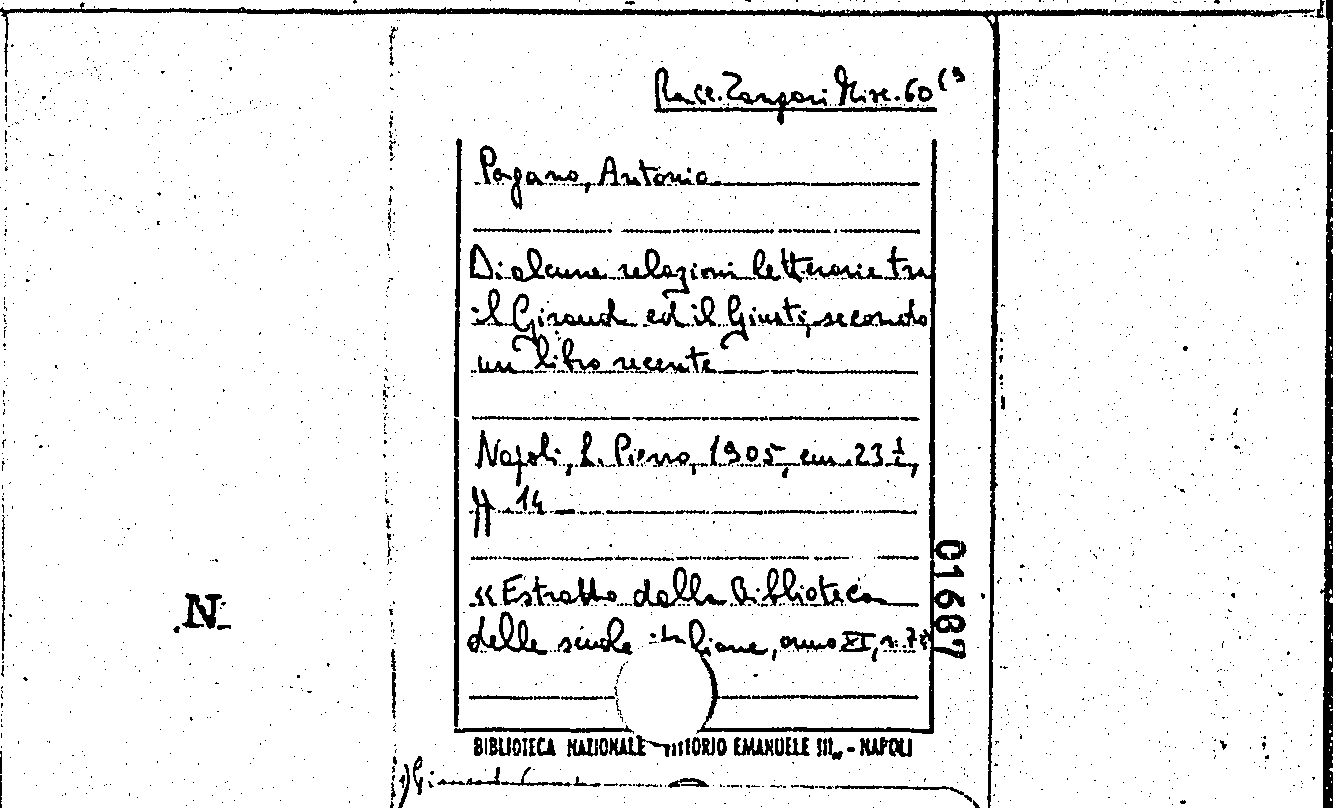 Racc. Zangari Misc. 60 (9
Pagano, Antonio
Di alcune relazioni letterarie tra
il Giraud ed il Giusti, secondo
un libro recente
Napoli, L. Pierro, 1905, cm. 23 ½,
pp. 14
«Estratto dalla Biblioteca
delle scuole italiane, anno XI, n. 7
01687
N
BIBLIOTECA NAZIONALE VITTORIO EMANUELE III„ - NAPOLI